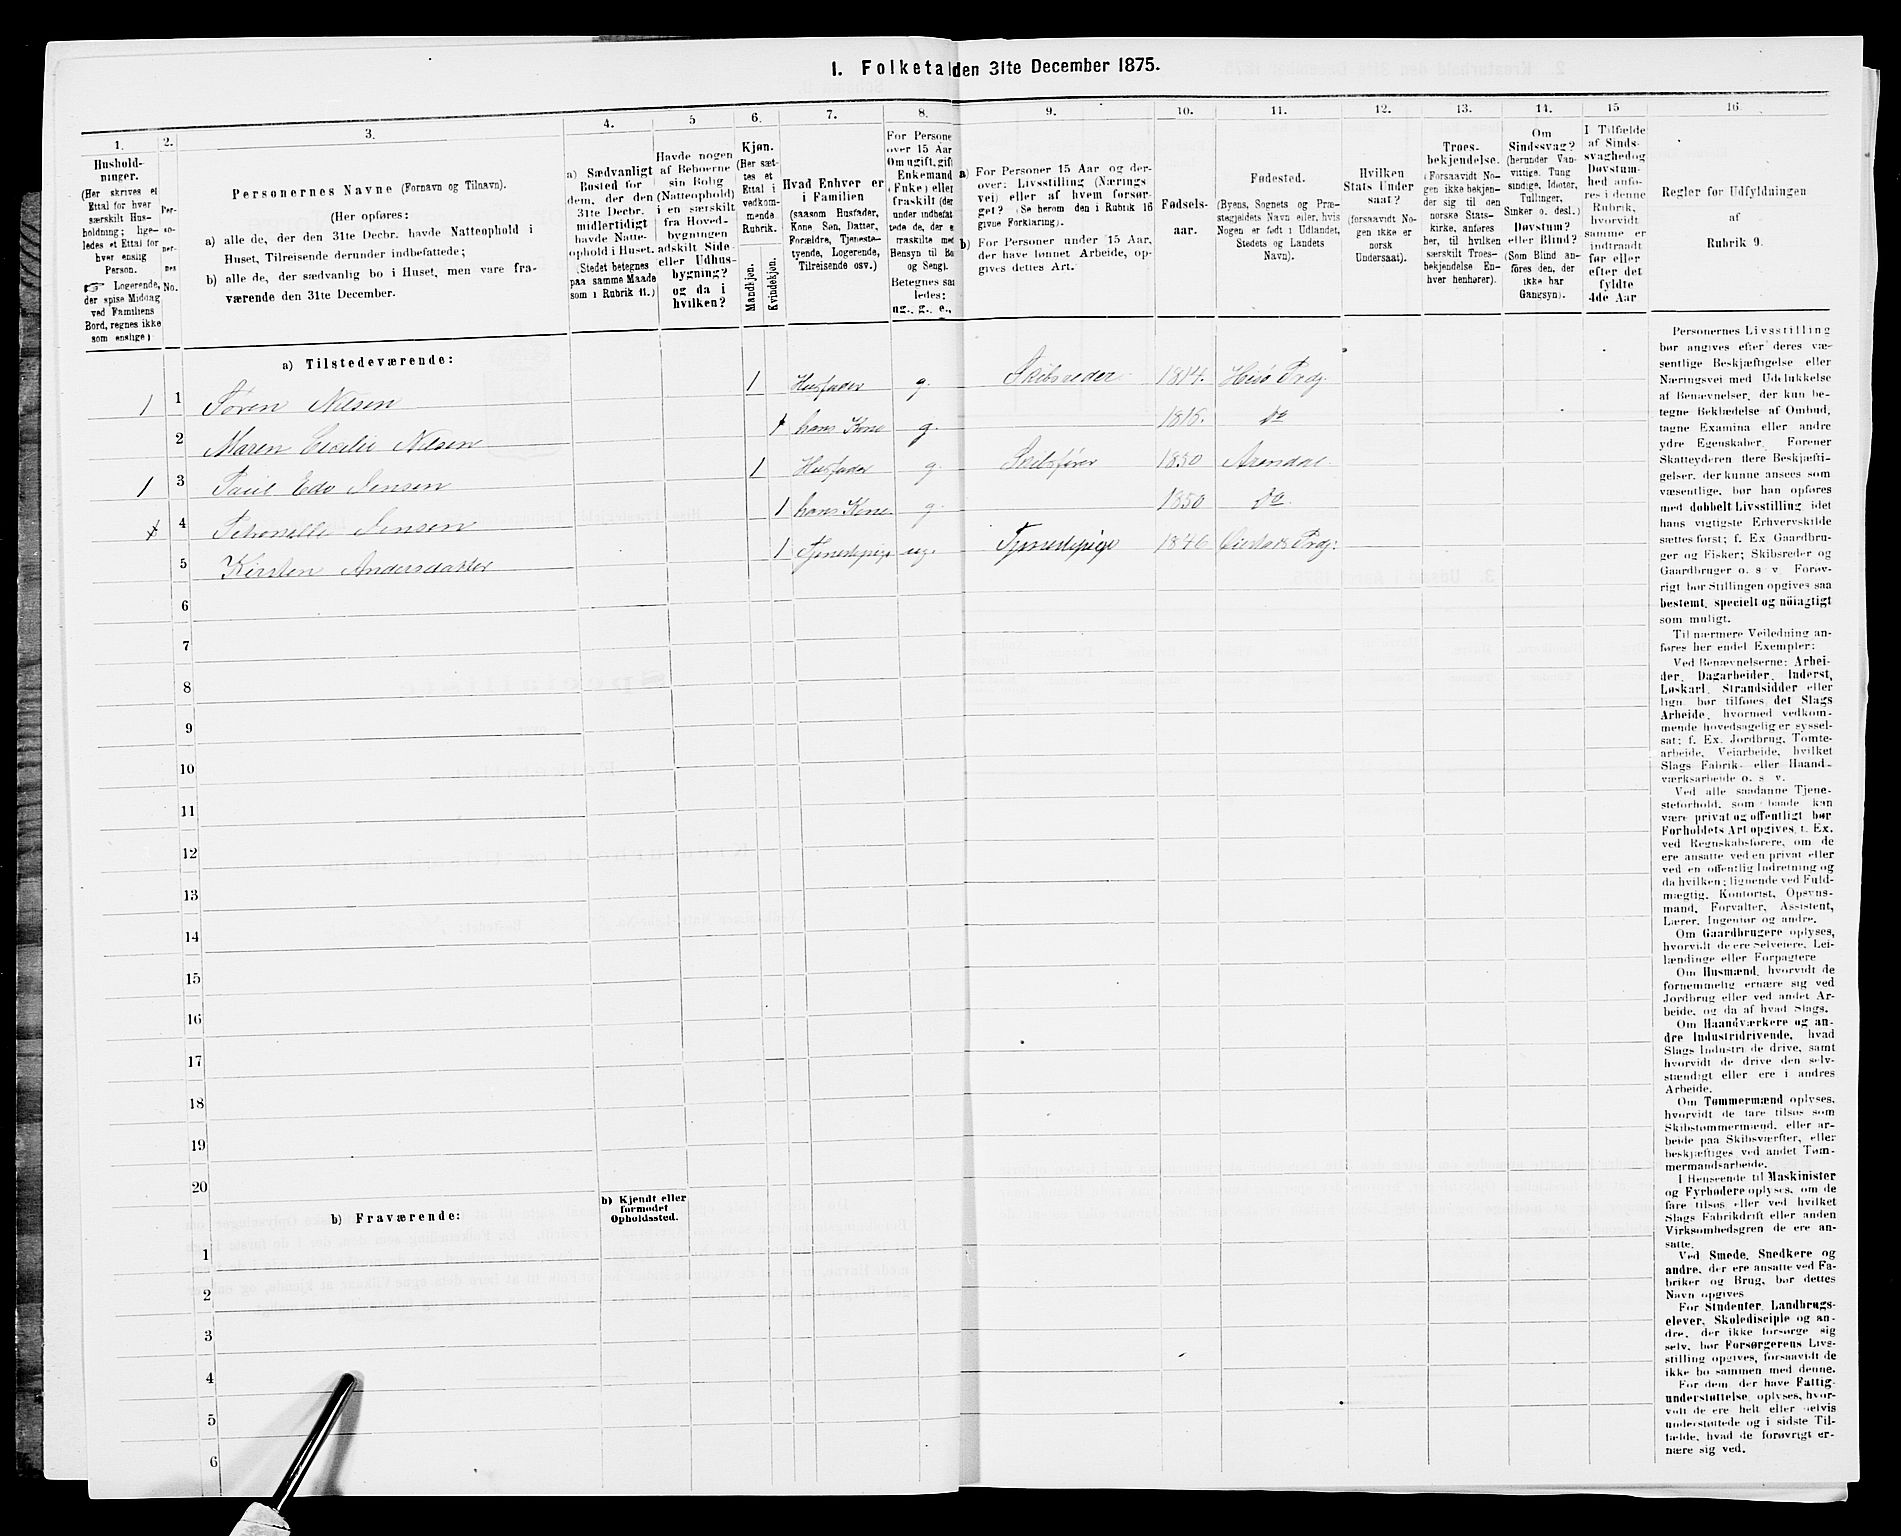 1. Folketal den 31te December 1875.
1.
2.
3.
4.
5
6.
7.
8.
9.
10.
11.
12.
13.
14.
15
16.
Hushold-
ninger.
(Her skrives et
Ettal for hver
særskilt Hus-
holdning; lige-
ledes et Ettal for
hver enslig
Person.
☞ Logerende,
der spise Middag
ved Familiens
Bord, regnes ikke
som enslige)
Per-
so-
ner-
nes
No.
Personernes Navne (Fornavn og Tilnavn).
(Her opføres:
a) alle de, der den 31te Decbr. havde Natteophold i
Huset, Tilreisende derunder indbefattede;
b) alle de, der sædvanlig bo i Huset, men vare fra-
værende den 31te December.
a) Sædvanligt
Bosted for
dem, der den
31te Decbr.
midlertidigt
havde Natte-
ophold i Huset.
(Stedet betegnes
paa samme Maade
som i Rubrik 11.)
Havde nogen
af Beboerne
sin Bolig
(Natteophold)
i en særskilt
fra Hoved-
bygningen
adskilt Side-
eller Udhus-
bygning?
og da i
hvilken?
Kjøn.
(Her sæt-
tes et
Ettal i
vedkom-
mende
Rubrik.
Mandkjøn.
Kvindekjøn.
Hvad Enhver er
i Familien
(saasom Husfader,
Kone Søn, Datter,
Forældre, Tjeneste-
tyende, Logerende,
Tilreisende osv.)
For Persone
over 15 Aar
Om ugift, gift
Enkemand
(Enke) eller
fraskilt (der
under indbefat
tede de, der e
fraskilte med
Hensyn til Bo
og Seng).
Betegnes saa
ledes:
ug., g., e.,
a) For Personer 15 Aar og der-
over: Livsstilling (Nærings
vei) eller af hvem forsør-
get? (Se herom den i Rubrik 16
givne Forklaring).
b) For Personer under 15 Aar,
der have lønnet Arbeide, op-
gives dettes Art.
Fødsels-
aar.
Fødested.
(Byens, Sognets og Præ-
stegjeldets Navn eller, hvis
Nogen er født i Udlandet,
Stedets og Landets
Navn).
Hvilken
Stats Under
saat?
(forsaavidt No-
gen ikke er
norsk
Undersaat).
Troes-
bekjendelse.
(Forsaavidt No
gen ikke bekjen-
der sig til den
norske Stats-
kirke, anføres
her, til hvilken
særskilt Troes-
bekjendelse En-
hver henhører).
Om
Sindssvag?
(herunder Van-
vittige, Tung
sindige, Idioter,
Tullinger,
Sinker o. desl.)
Døvstum?
eller Blind?
(Som Blind an-
føres den, der
ikke har
Gangsyn).
I Tilfælde
af Sinds-
svaghed og
Døvstum-
hed anfø-
res i denne
Rubrik,
hvorvidt
samme er
indtraadt
før eller
efter det
fyldte
4de Aar
Regler for Udfyldningen
af
Rubrik 9.
a) Tilstedeværende:
1 1 Søren Nilsen 1 Husfader g. Skibsreder 1814. Hisø Prgj.
2 Maren Cecilie Nilsen 1 hans Kone g. 1815. do
1 3 Paul Edv Jensen 1 Husfader g. Skibsfører 1850 Arendal
4 Petronelle Jensen 1 hans Kone g. 1850 do
5 Kirsten Andersdatter 1 Tjenestepige ug. Tjenestepige 1846 Øiestads Prgj.
6
7
8
9
10
11
12
13
14
15
16
17
18
19
20
b) Fraværende:
b) Kjendt eller
formodet
Opholdssted.
1
2
3
4
5
6
Personernes Livsstilling
bør angives efter deres væ-
sentlige Beskjæftigelse eller
Næringsvei med Udelukkelse
af Benævnelser, der kun be-
tegne Beklædelse af Ombud,
tagne Examina eller andre
ydre Egenskaber. Forener
Skatteyderen flere Beskjæfti-
gelser, der kunne ansees som
væsentlige, bør han opføres
med dobbelt Livsstilling, idet
hans vigtigste Erhvervskilde
sættes først; f. Ex Gaardbru-
ger og Fisker; Skibsreder og
Gaardbruger o. s v. Forøv-
rigt bør Stillingen opgives saa
bestemt, specielt og nöiagtigt
som muligt.
Til nærmere Veiledning an-
føres her endel Exempler:
Ved Benævnelserne: Arbei-
der, Dagarbeider, Inderst,
Løskarl, Strandsidder eller
lign. bør tilføies det Slags
Arbeide, hvormed vedkom-
mende hovedsagelig er syssel-
sat; f. Ex. Jordbrug, Tomte-
arbeide, Veiarbeide, hvilket
Slags Fabrik- eller Haand-
værksarbeide o. s v.
Ved alle saadanne Tjene-
steforhold, som baade kan
være privat og offentligt bør
Forholdets Art opgives, f. Ex.
ved Regnskabsførere, om de
ere ansatte ved en privat eller
ved en offentlig Indretning og
da hvilken; lignende ved Fuld-
mægtig, Kontorist, Opsyns-
mand, Forvalter, Assistent,
Lærer, Ingeniør og andre.
Om Gaardbrugere oplyses,
hvorvidt de ere Selveiere, Lei-
lændinge eller Forpagtere
Om Husmænd, hvorvidt de
fornemmelig ernære sig ved
Jordbrug eller ved andet Ar-
beide, og da af hvad Slags.
Om Haandværkere og an-
dre Industridrivende, hvad
Slags Industri de drive, samt
hvorvidt de drive den selv-
stændigt eller ere i andres
Arbeide.
Om Tømmermænd oplyses,
hvorvidt de fare tilsøs som
Skibstømmermænd, eller ar-
beide paa Skibsværfter, eller
beskjæftiges ved andet Tøm-
mermandsarbeide.
I Henseende til Maskinister
og Fyrbødere oplyses, om de
fare tilsøs eller ved hvilket
Slags Fabrikdrift eller anden
Virksomhedsgren de ere an-
satte.
Ved Smede, Snedkere og
andre, der ere ansatte ved Fa-
briker og Brug, bør dettes
Navn opgives
For Studenter, Landbrugs-
elever, Skoledisciple og an-
dre, der ikke forsørge sig
selv, bør Forsørgerens Livs-
stilling opgives, forsaavidt de
ikke bo sammen med denne.
For dem, der have Fattig-
understøttelse, oplyses, hvor-
vidt de ere helt eller delvis
understøttede og i sidste Til-
fælde, hvad de forøvrigt er-
nære sig ved.